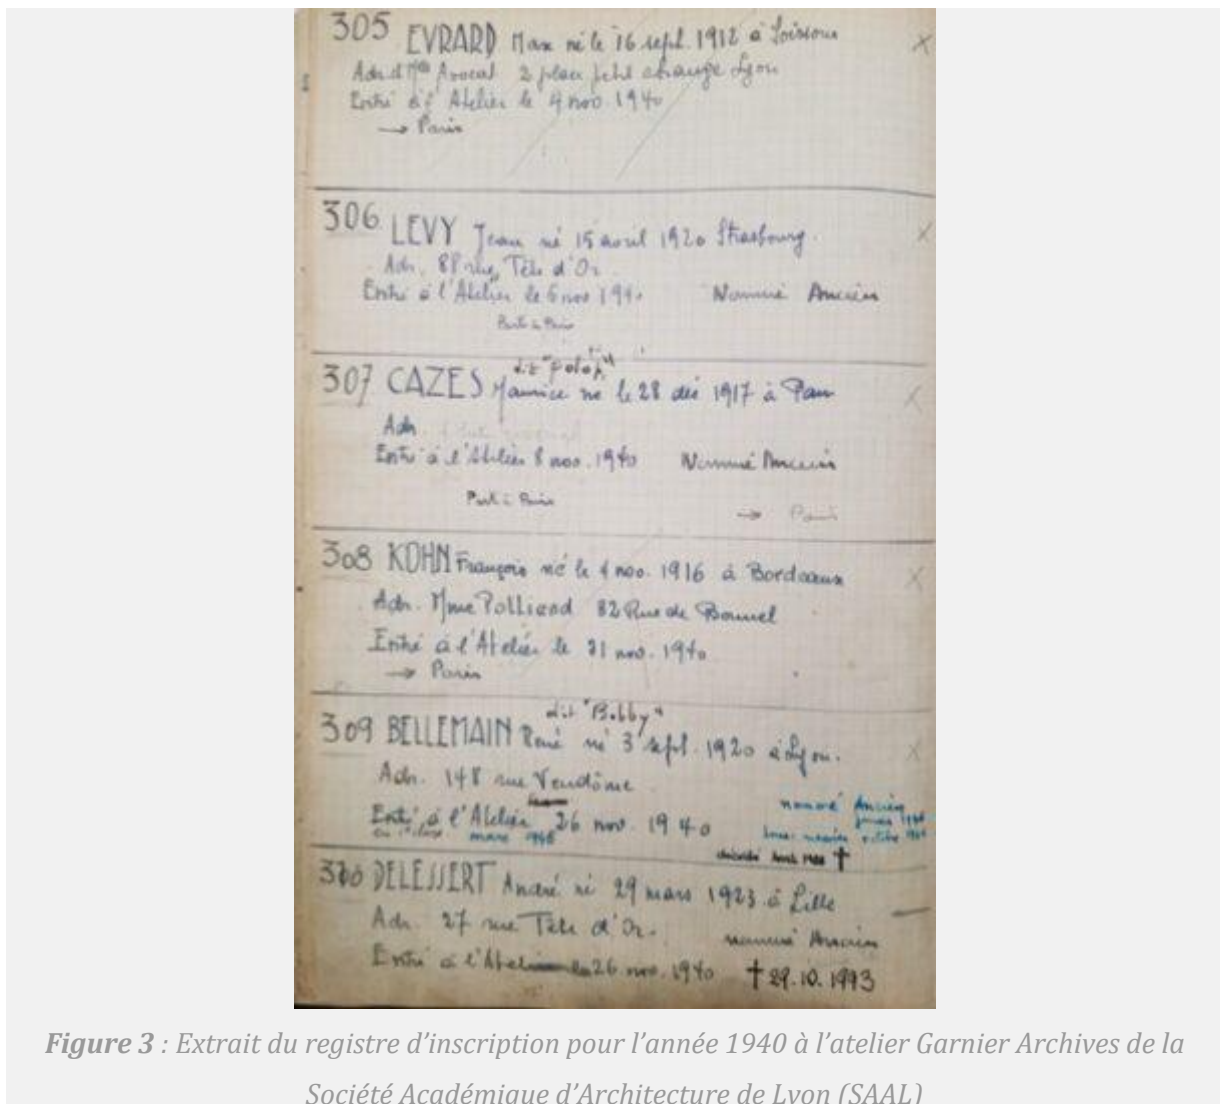 305 EVRARD Max né le 16 sept. 1912 à Soissons
Adr. Avocat 2 place petit change Lyon
Entré à l'Atelier le 4 nov. 1940
→ Paris
306 LEVY Jean né 15 avril 1920 Strasbourg.
Adr. 88 rue Tête d'Or
Entré à l'Atelier le 6 nov 1940 Nommé Ancien
Parti à Paris
dit
307 CAZES Maurice né le 28 déc 1917 à Pau
Adr
Entré à l'Atelier 8 nov. 1940 Nommé Ancien
Parti à Paris → Paris
308 KOHN François né le 4 nov. 1916 à Bordeaux
Adr. Mme 82 Rue de Bonnel
Entré à l'Atelier le 21 nov. 1940
→ Paris
dit "Bobby"
309 BELLEMAIN René né 3 sept. 1920 à Lyon.
Adr. 148 rue Vendôme
nommé Ancien
Entré à l'Atelier 26 nov. 1940
en 1e classe mars 1946 octobre
décédé †
310 DELESSERT André né 29 mars 1923 à Lille
Adr. 27 rue Tête d'Or.
nommé Ancien
Entré à l'Atelier le 26 nov. 1940 † 29.10.1993
Figure 3 : Extrait du registre d'inscription pour l'année 1940 à l'atelier Garnier Archives de la
Société Académique d'Architecture de Lyon (SAAL)